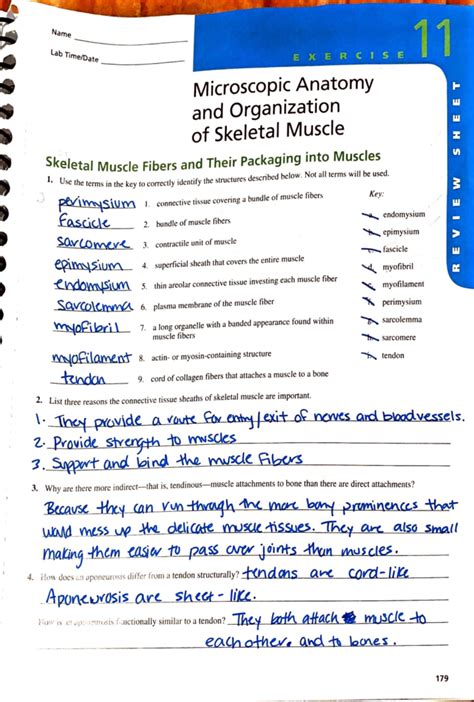 Name
Lab Time/Date
EXERCISE 11
REVIEW SHEET
Microscopic Anatomy
and Organization
of Skeletal Muscle
Skeletal Muscle Fibers and Their Packaging into Muscles
1. Use the terms in the key to correctly identify the structures described below. Not all terms will be used.
perimysium 1. connective tissue covering a bundle of muscle fibers
Key:
fascicle 2. bundle of muscle fibers
endomysium
sarcomere 3. contractile unit of muscle
epimysium
epimysium 4. superficial sheath that covers the entire muscle
fascicle
endomysium 5. thin areolar connective tissue investing each muscle fiber
myofibril
sarcolemma 6. plasma membrane of the muscle fiber
myofilament
myofibril 7. a long organelle with a banded appearance found within
muscle fibers
perimysium
sarcolemma
myofilament 8. actin- or myosin-containing structure
sarcomere
tendon 9. cord of collagen fibers that attaches a muscle to a bone
tendon
2. List three reasons the connective tissue sheaths of skeletal muscle are important.
1. They provide a route for entry/exit of nerves and bloodvessels.
2. Provide strength to muscles
3. Support and bind the muscle fibers
3. Why are there more indirect—that is, tendinous—muscle attachments to bone than there are direct attachments?
Because they can run through the more bony prominences that
would mess up the delicate muscle tissues. They are also small
making them easier to pass over joints than muscles.
4. How does an aponeurosis differ from a tendon structurally? tendons are cord-like
Aponeurosis are sheet-like.
How is an aponeurosis functionally similar to a tendon? They both attach muscle to
each other and to bones.
179